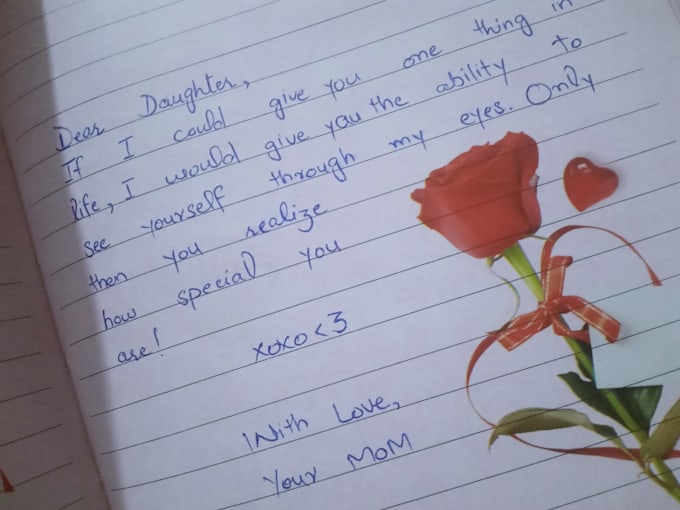 Dear Daughter,
If I could give you one thing in
life, I would give you the ability to
see yourself through my eyes. Only
then you realize
how special you
are!
xoxo <3
With Love,
Your MOM